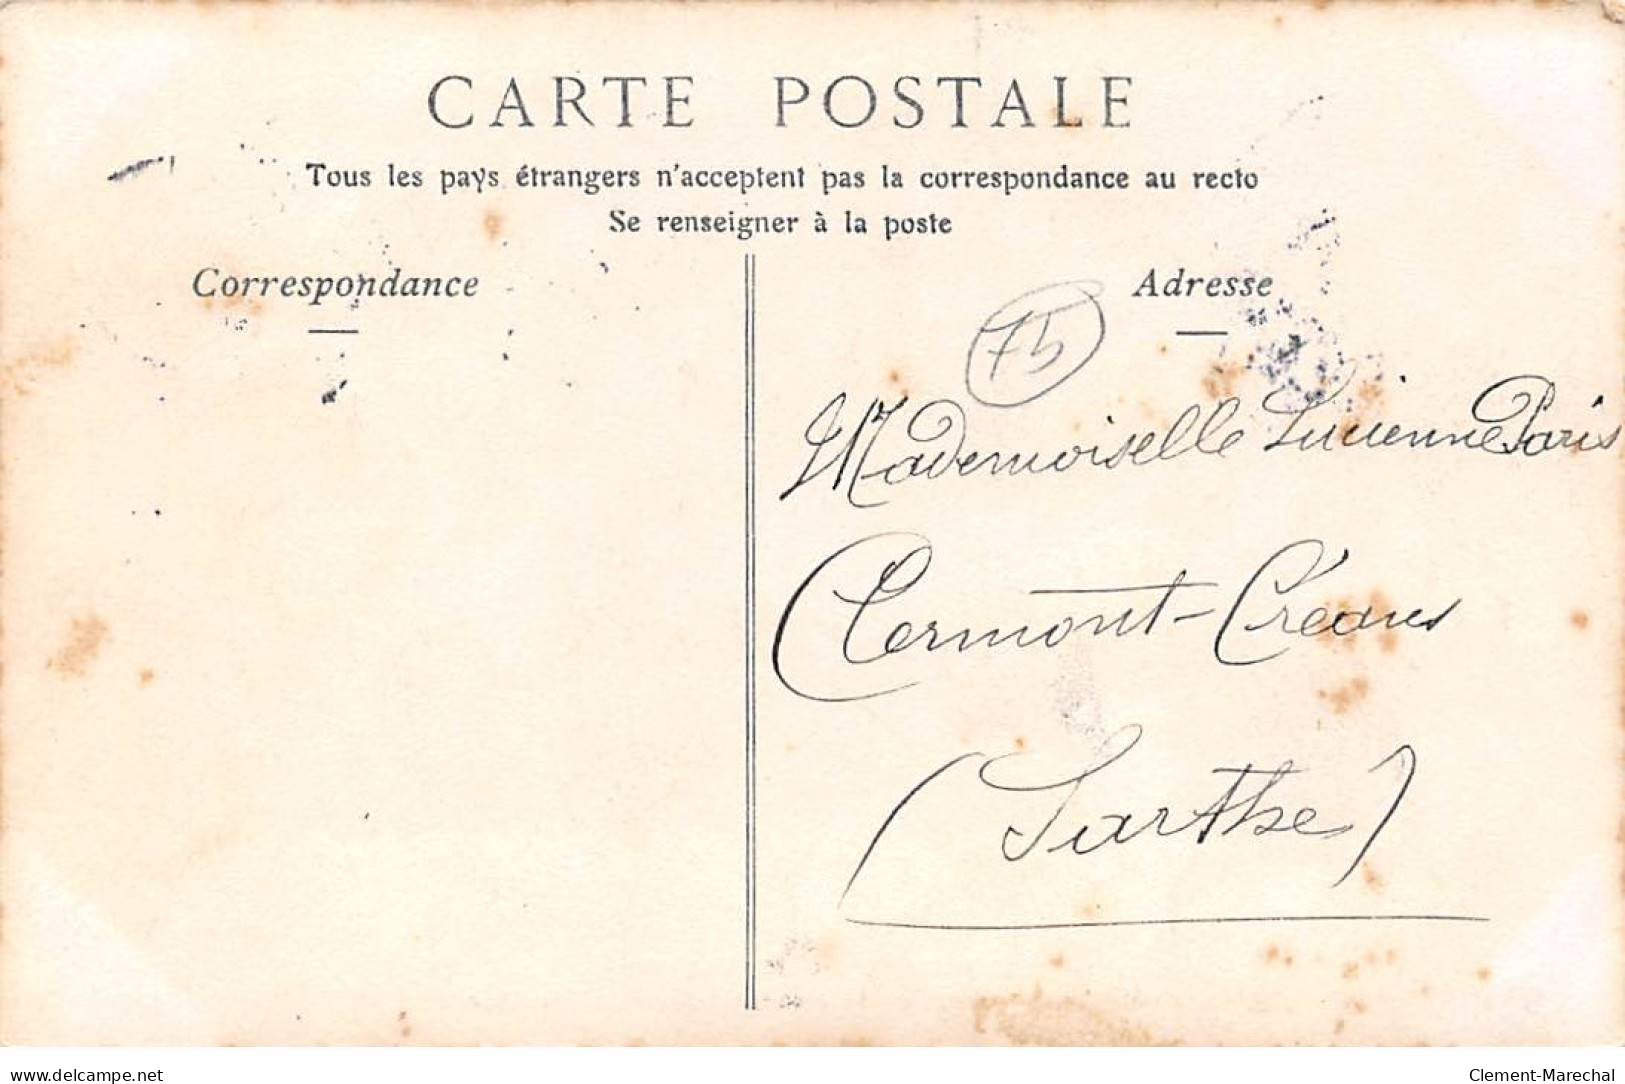 CARTE POSTALE
Tous les pays étrangers n'acceptent pas la correspondance au recto
Se renseigner à la poste
Correspondance
Adresse
75
Mademoiselle Lucienne Paris
Clermont-Créans
(Sarthe)
www.delcampe.net
Clement-Marechal